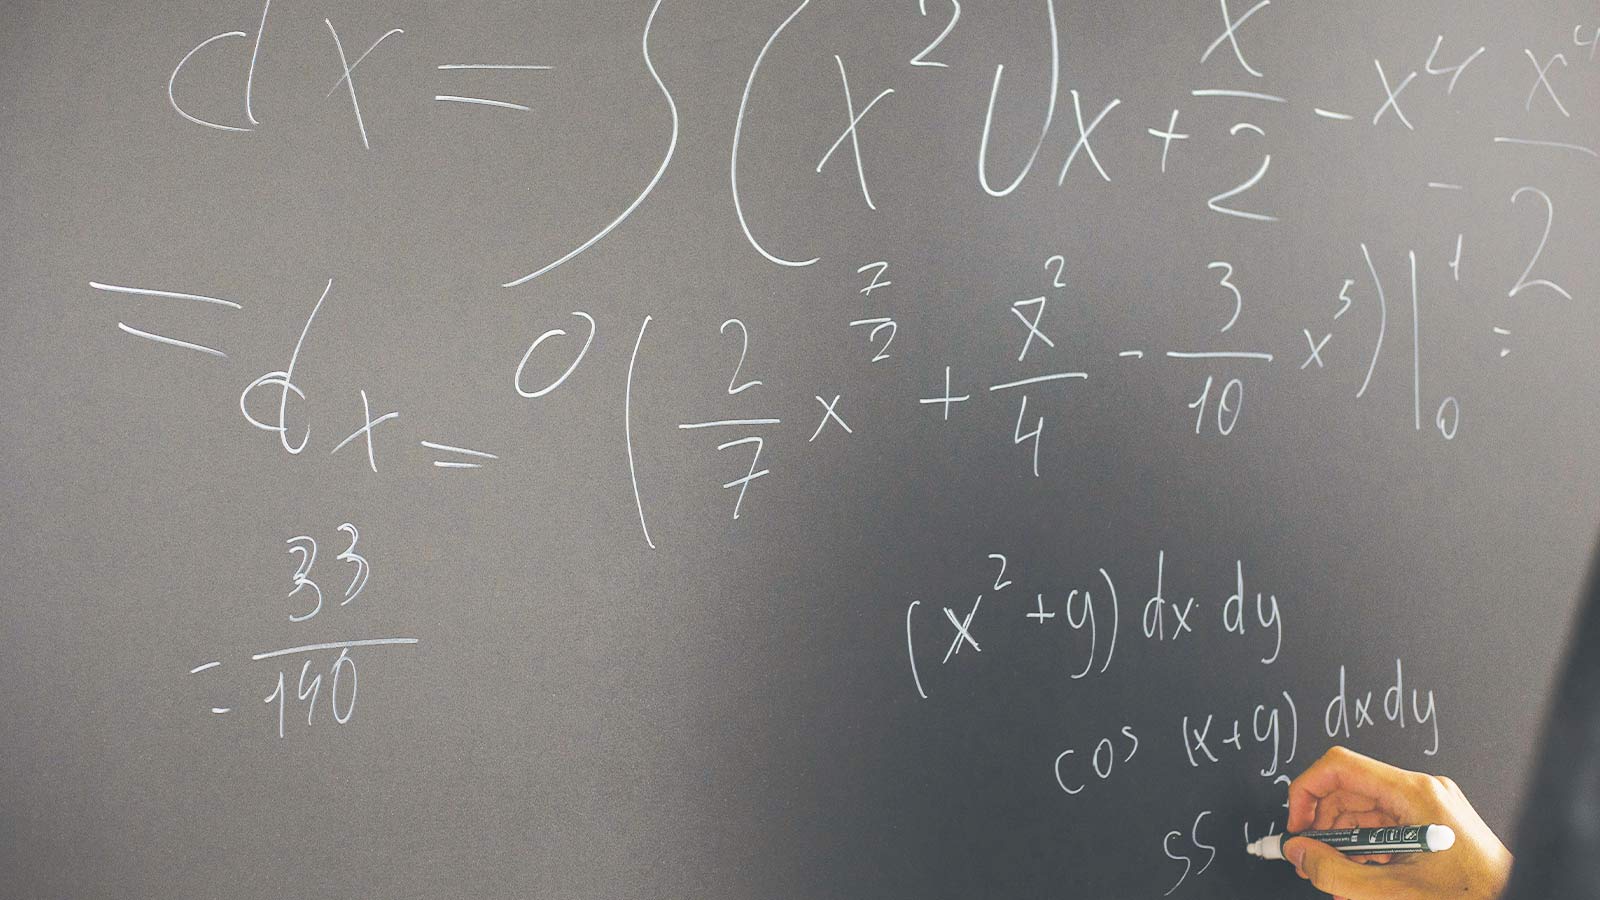 dx = ∫ (x² √x + x/2 - x⁴ - x⁴/2
= dx = 0 (2/7 x^(7/2) + x²/4 - 3/10 x⁵)|₀¹ =
= 33/140
(x² + y) dx dy
cos (x+y) dx dy
SS